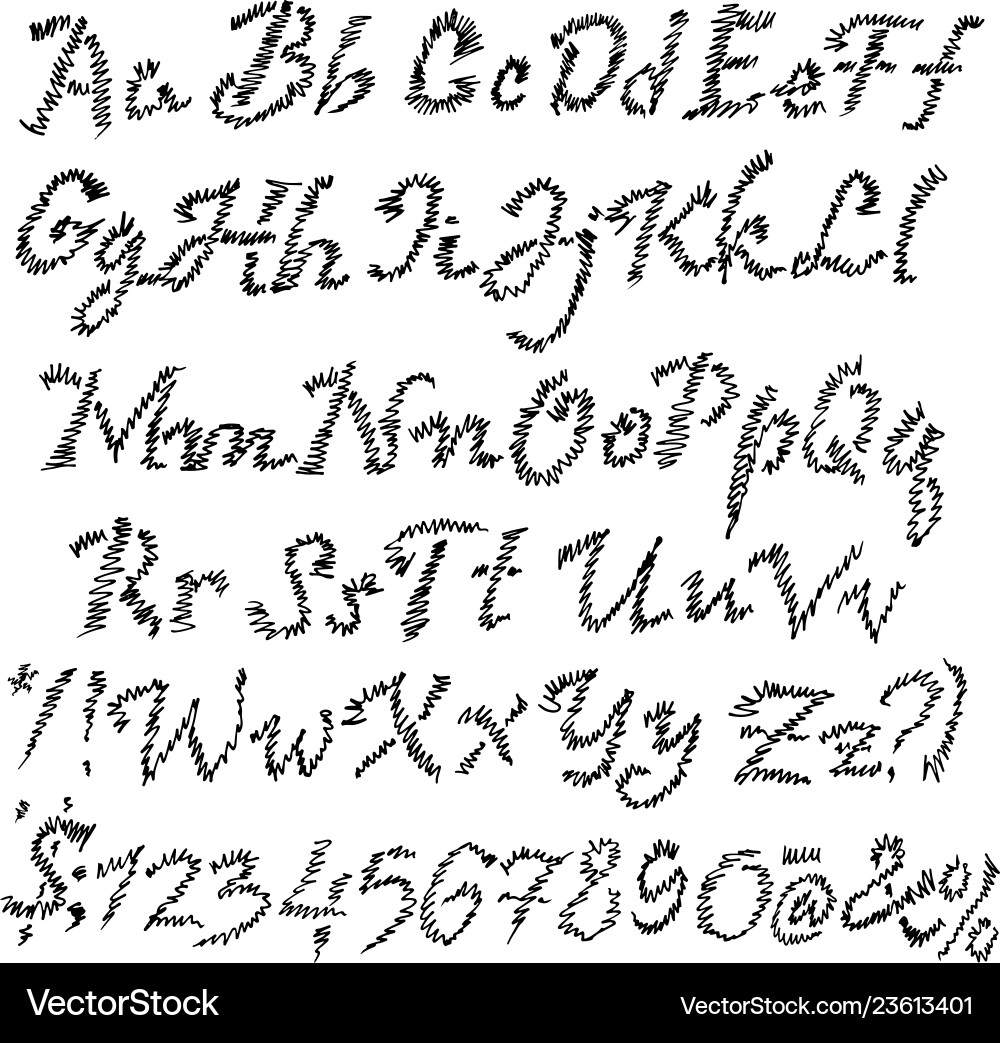 Aa Bb Cc Dd Ee Ff
Gg Hh Ii Jj Kk Ll
Mm Nn Oo Pp Qq
Rr Ss Tt Uu Vv
* / ! Ww Xx Yy Zz ? )
$ ; 1234567890 @ & %
VectorStock VectorStock.com/23613401